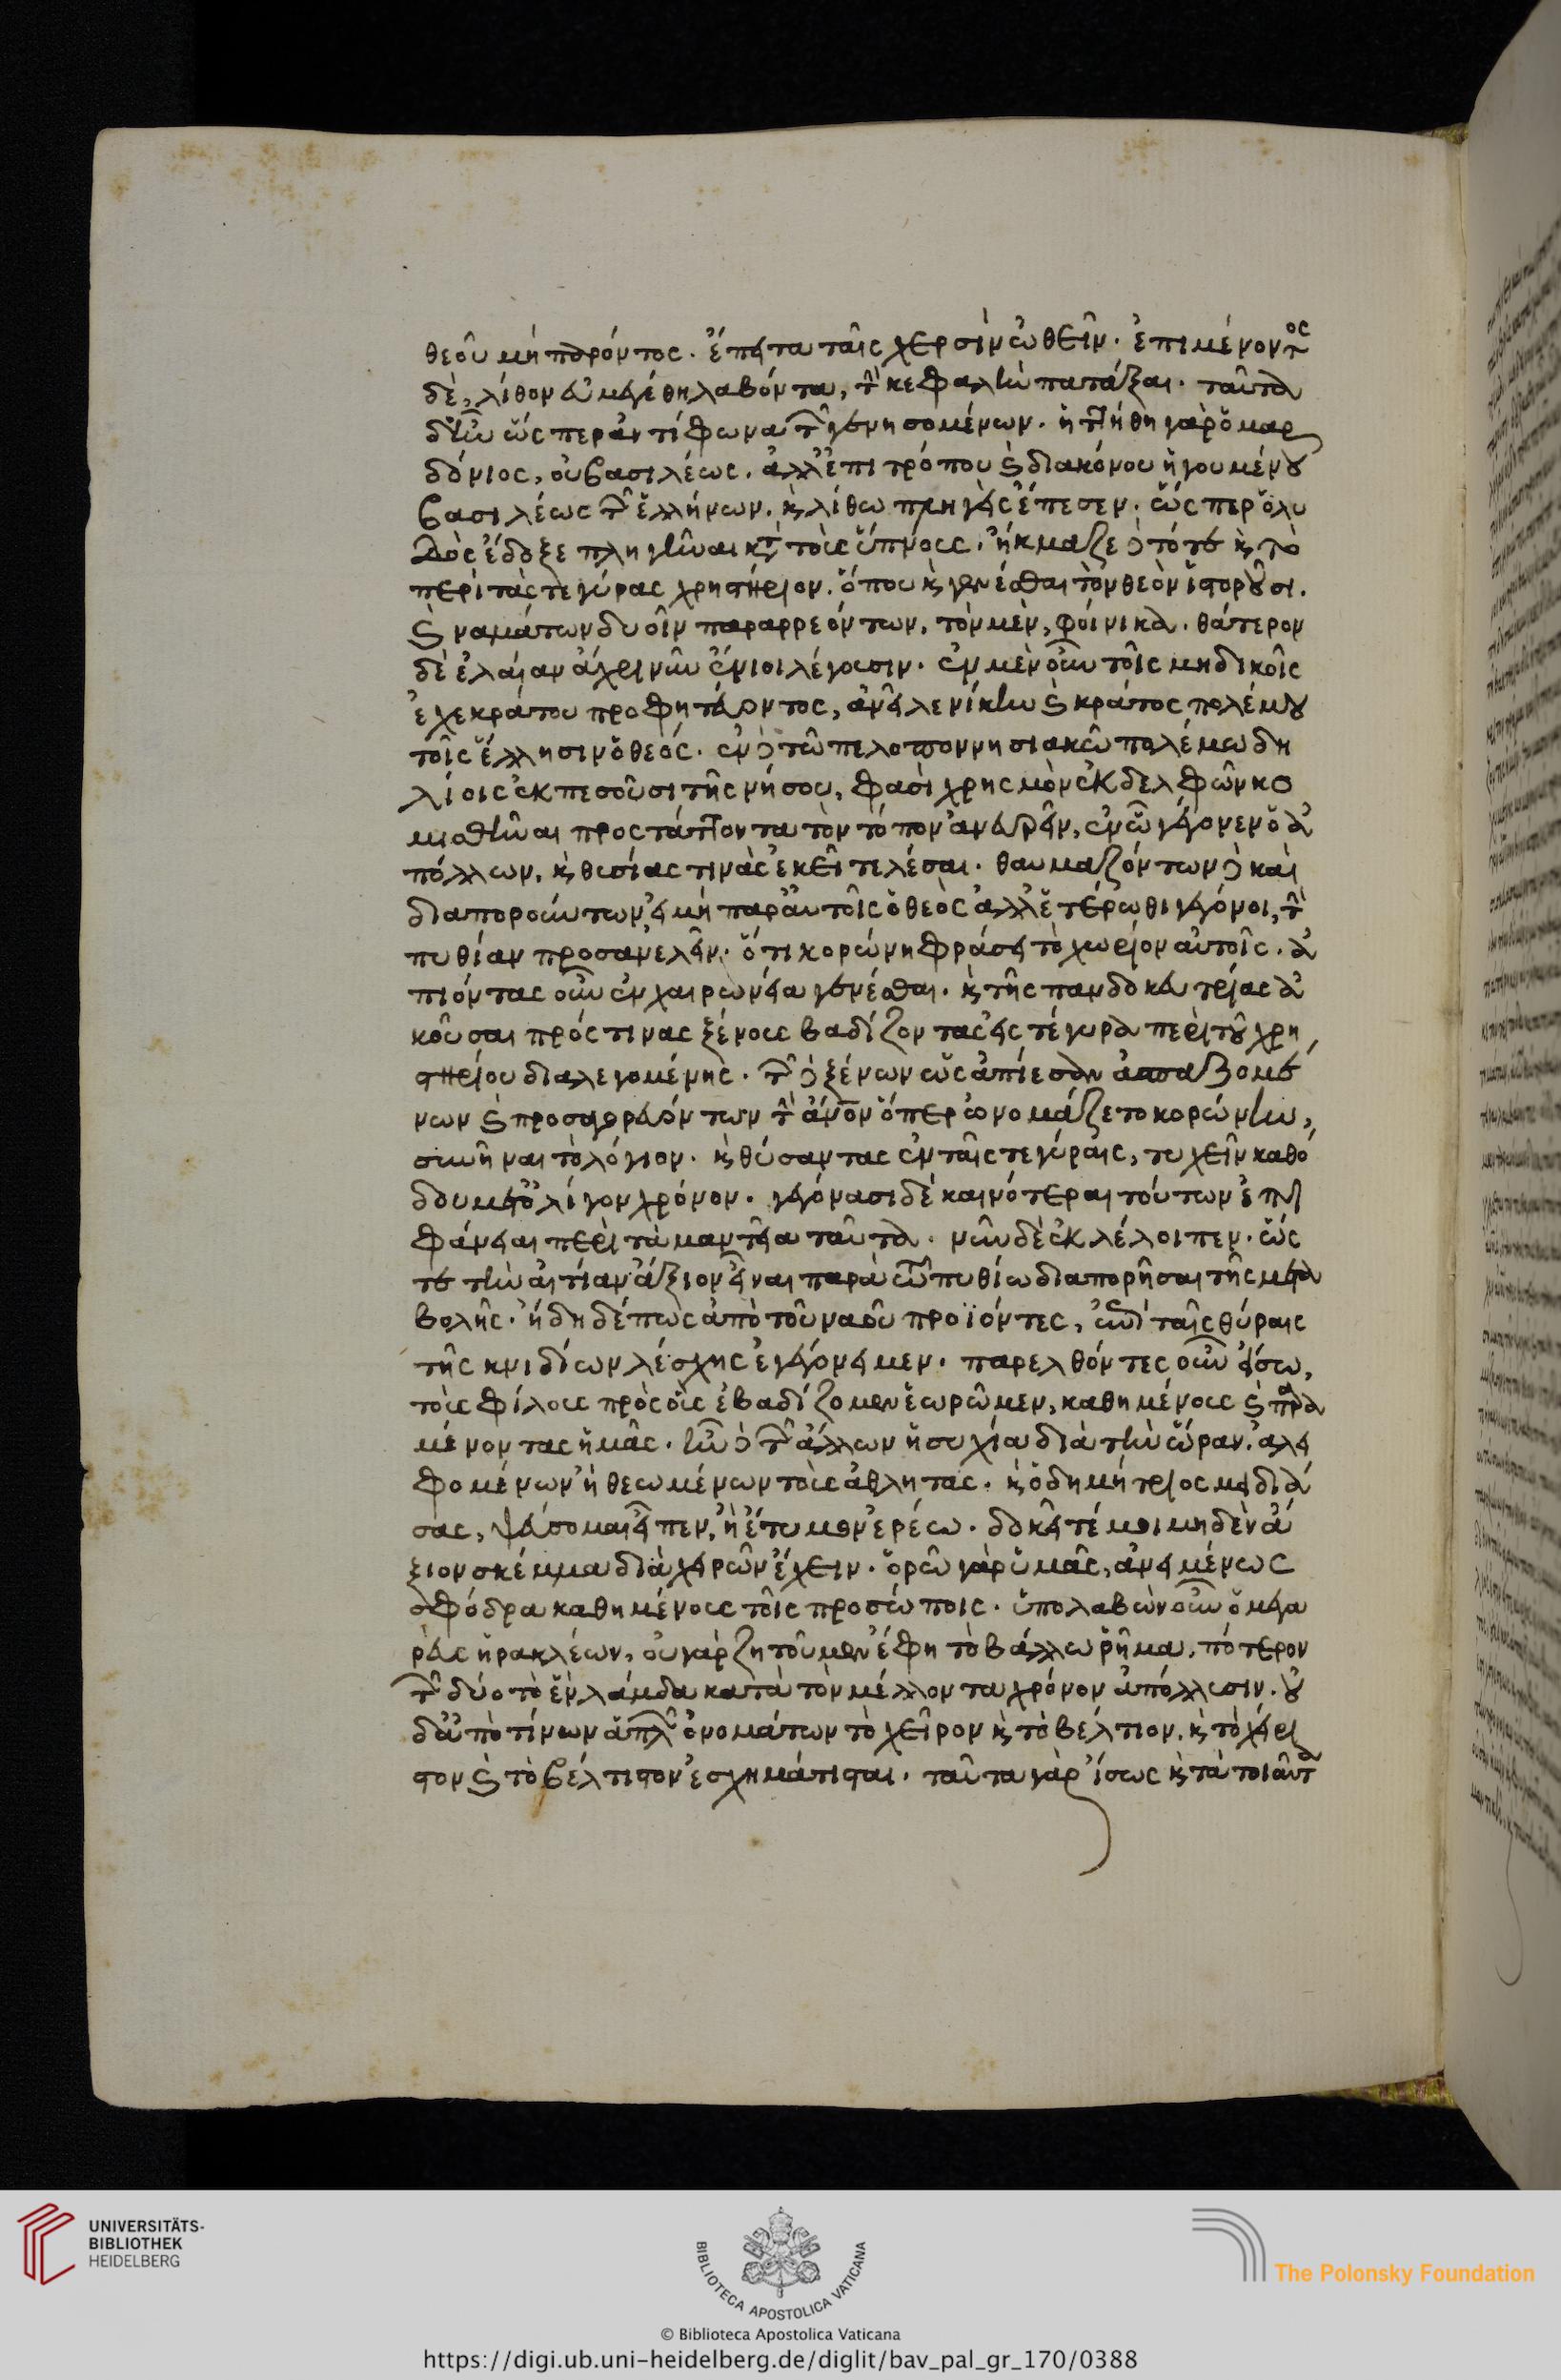 θεοῦ μὴ παρόντος. ἔπειτα ταῖς χερσὶν ὠθεῖν. ἐπιμένοντος
δὲ, λίθον εὐμεγέθη λαβόντα, τὴν κεφαλὴν πατάξαι. ταῦτα
δ' ἦν ὥσπερ ἀντίφωνα τῶν γενησομένων. ἡττήθη γὰρ ὁ μαρ
δόνιος, οὐ βασιλέως. ἀλλ' ἐπιτρόπου καὶ διακόνου ἡγουμένου
βασιλέως τῶν ἑλλήνων. καὶ λίθω πληγεὶς ἔπεσεν. ὥσπερ ὁ λυ
δὸς ἔδοξε πληγῆναι κατὰ τοὺς ὕπνους. ἤκμαζε δὲ τότε καὶ τὸ
περὶ τὰς τεγύρας χρηστήριον. ὅπου καὶ γενέσθαι τὸν θεὸν ἱστοροῦσι.
καὶ ναμάτων δυοῖν παραρρεόντων, τὸν μὲν, φοίνικα. θάτερον
δὲ ἐλαίαν ἄχρι νῦν ἔνιοι λέγουσιν. ἐν μὲν οὖν τοῖς μηδικοῖς
ἐχεκράτου προφητεύοντος, ἀνεῖλε νίκην καὶ κράτος πολέμου
τοῖς ἕλλησιν ὁ θεός. ἐν δὲ τῶ πελοποννησιακῶ πολέμω δη
λίοις ἐκπεσοῦσι τῆς νήσου, φασὶ χρησμὸν ἐκ δελφῶν κο
μισθῆναι προστάττοντα τὸν τόπον ἀνευρεῖν, ἐν ὧ γέγονεν ὁ ἀ
πόλλων, καὶ θυσίας τινὰς ἐκεῖ τελέσαι. θαυμαζόντων δὲ καὶ
διαπορούντων εἰ μὴ παρ' αὐτοῖς ὁ θεὸς ἀλλ' ἑτέρωθι γεγόνοι, τὴν
πυθίαν προσανελεῖν. ὅτι κορώνη φράσει τὸ χωρίον αὐτοῖς. ἀ
πιόντας οὖν ἐν χαιρωνεία γενέσθαι. καὶ τῆς πανδοκευτρίας ἀ
κοῦσαι πρός τινας ξένους βαδίζοντας εἰς τέγυρα περὶ τοῦ χρη
στηρίου διαλεγομένης. τῶν δὲ ξένων ὡς ἀπίεσαν ἀσπαζομέ
νων καὶ προσαγορευόντων τὴν ἄνθρωπον ὅπερ ὠνομάζετο κορώνην,
συνεῖναι τὸ λόγιον. καὶ θύσαντας ἐν ταῖς τεγύραις, τυχεῖν καθό
δου μετ' ὀλίγον χρόνον. γεγόνασι δὲ καινότεραι τούτων ἐπι
φάνειαι περὶ τὰ μαντεῖα ταῦτα. νῦν δὲ ἐκλέλοιπεν. ὥς
τε τὴν αἰτίαν ἄξιον εἶναι παρὰ τῶ πυθίω διαπορῆσαι τῆς μετα
βολῆς. ἤδη δέ πως ἀπὸ τοῦ ναοῦ προϊόντες, ἐπὶ ταῖς θύραις
τῆς κνιδίων λέσχης ἐγεγόνειμεν. παρελθόντες οὖν εἴσω,
τοὺς φίλους πρὸς οὓς ἐβαδίζομεν ἑωρῶμεν, καθημένους καὶ περι
μένοντας ἡμᾶς. ἦν δὲ τῶν ἄλλων ἡσυχία διὰ τὴν ὥραν. ἀλει
φομένων ἢ θεωμένων τοὺς ἀθλητάς. καὶ ὁ δημήτριος μειδιά
σας, ψεύσομαι εἶπεν, ἢ ἔτυμον ἐρέω. δοκεῖτέ μοι μηδὲν ἄ
ξιον σκέμμα διὰ χειρῶν ἔχειν. ὁρῶ γὰρ ὑμᾶς, ἀνειμένως
σφόδρα καθημένους τοῖς προσώποις. ὑπολαβὼν οὖν ὁ μεγα
ρεὺς ἡρακλέων, οὐ γὰρ ζητοῦμεν ἔφη τὸ βάλλω ῥῆμα, πότερον
τῶν δύο τὸ ἓν λάμδα κατὰ τὸν μέλλοντα χρόνον ἀπόλλυσιν. οὐ
δ' ἀπὸ τίνων ἁπλῶν ὀνομάτων τὸ χεῖρον καὶ τὸ βέλτιον. καὶ τὸ χείρι
στον καὶ τὸ βέλτιστον ἐσχημάτισται. ταῦτα γὰρ ἴσως καὶ τὰ τοιαῦτα
UNIVERSITÄTS-
BIBLIOTHEK
HEIDELBERG
BIBLIOTECA APOSTOLICA VATICANA
The Polonsky Foundation
© Biblioteca Apostolica Vaticana
https://digi.ub.uni-heidelberg.de/diglit/bav_pal_gr_170/0388